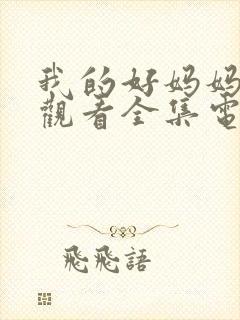 我的好妈妈
觀看全集電
飛飛語